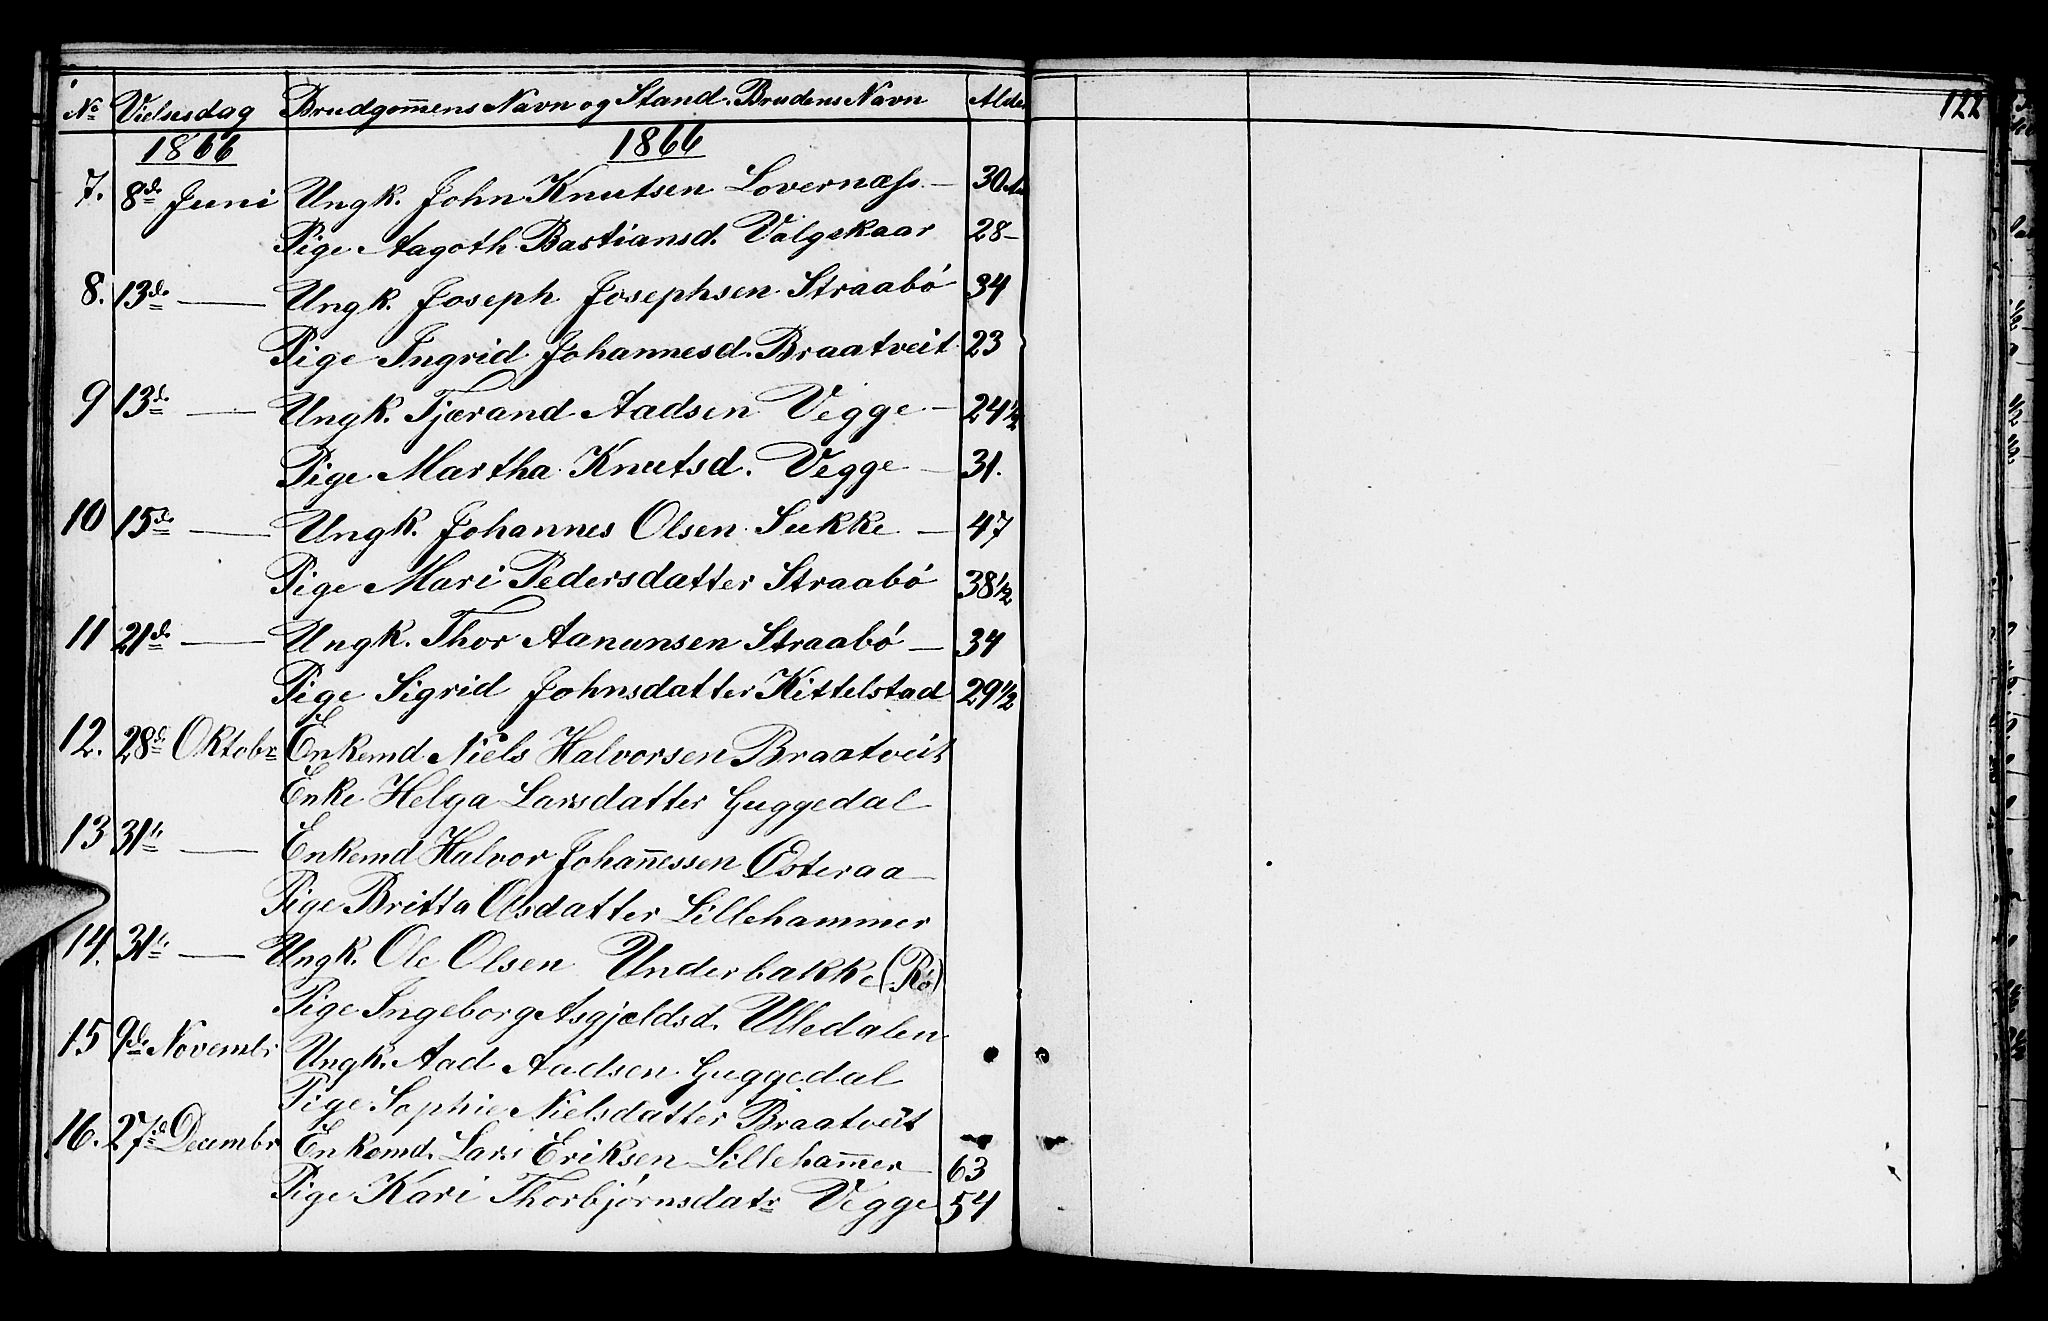 No Vielsesdag Brudgom̅ens Navn og Stand. Brudens Navn Alder
122
1866 1866
7. 8de Juni Ungk. John Knutsen Lovernæss — 30 Aar
Pige Aagoth Bastiansd. Valgskaar 28 —
8. 13de — Ungk. Joseph Josephsen Straabó 34
Pige Ingrid Johannesd. Braatveit 23
9 13de — Ungk. Tjærand Aadsen Vegge — 24½
Pige Martha Knutsd. Vegge — 31.
10 15de — Ungk. Johannes Olsen Sukke — 47
Pige Mari Pedersdatter Straabó 38½
11 21de — Ungk. Thor Aanunsen Straabó — 34
Pige Sigrid Johnsdatter Kittelstad 29½
12. 28de Oktobr Enkemd Niels Halvorsen Braatveit
Enke Helga Larsdatter Guggedal
13 31te — Enkemd Halvor Johan̅essen Østeraa —
Pige Britta Olsdatter Lillehammer
14. 31te — Ungk. Ole Olsen Underbakke (Rø)
Pige Ingeborg Asgjeldsd. Ulledalen
15 9de Novembr Ungk. Aad Aadsen Guggedal
Pige Sophie Nielsdatter Braatveit
16. 27de Decembr Enkemd. Lars Eriksen Lilleham̅er — 63
Pige Kari Thorbjórnsdatr Vegge 54